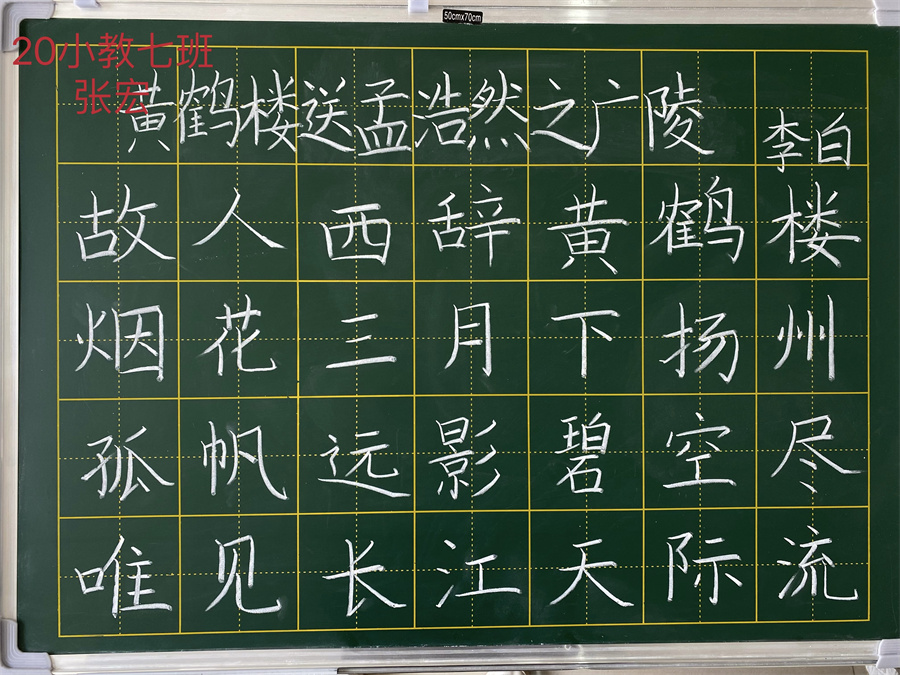 50cmx70cm
20小教七班
张宏
黄鹤楼送孟浩然之广陵
李白
故人西辞黄鹤楼
烟花三月下扬州
孤帆远影碧空尽
唯见长江天际流